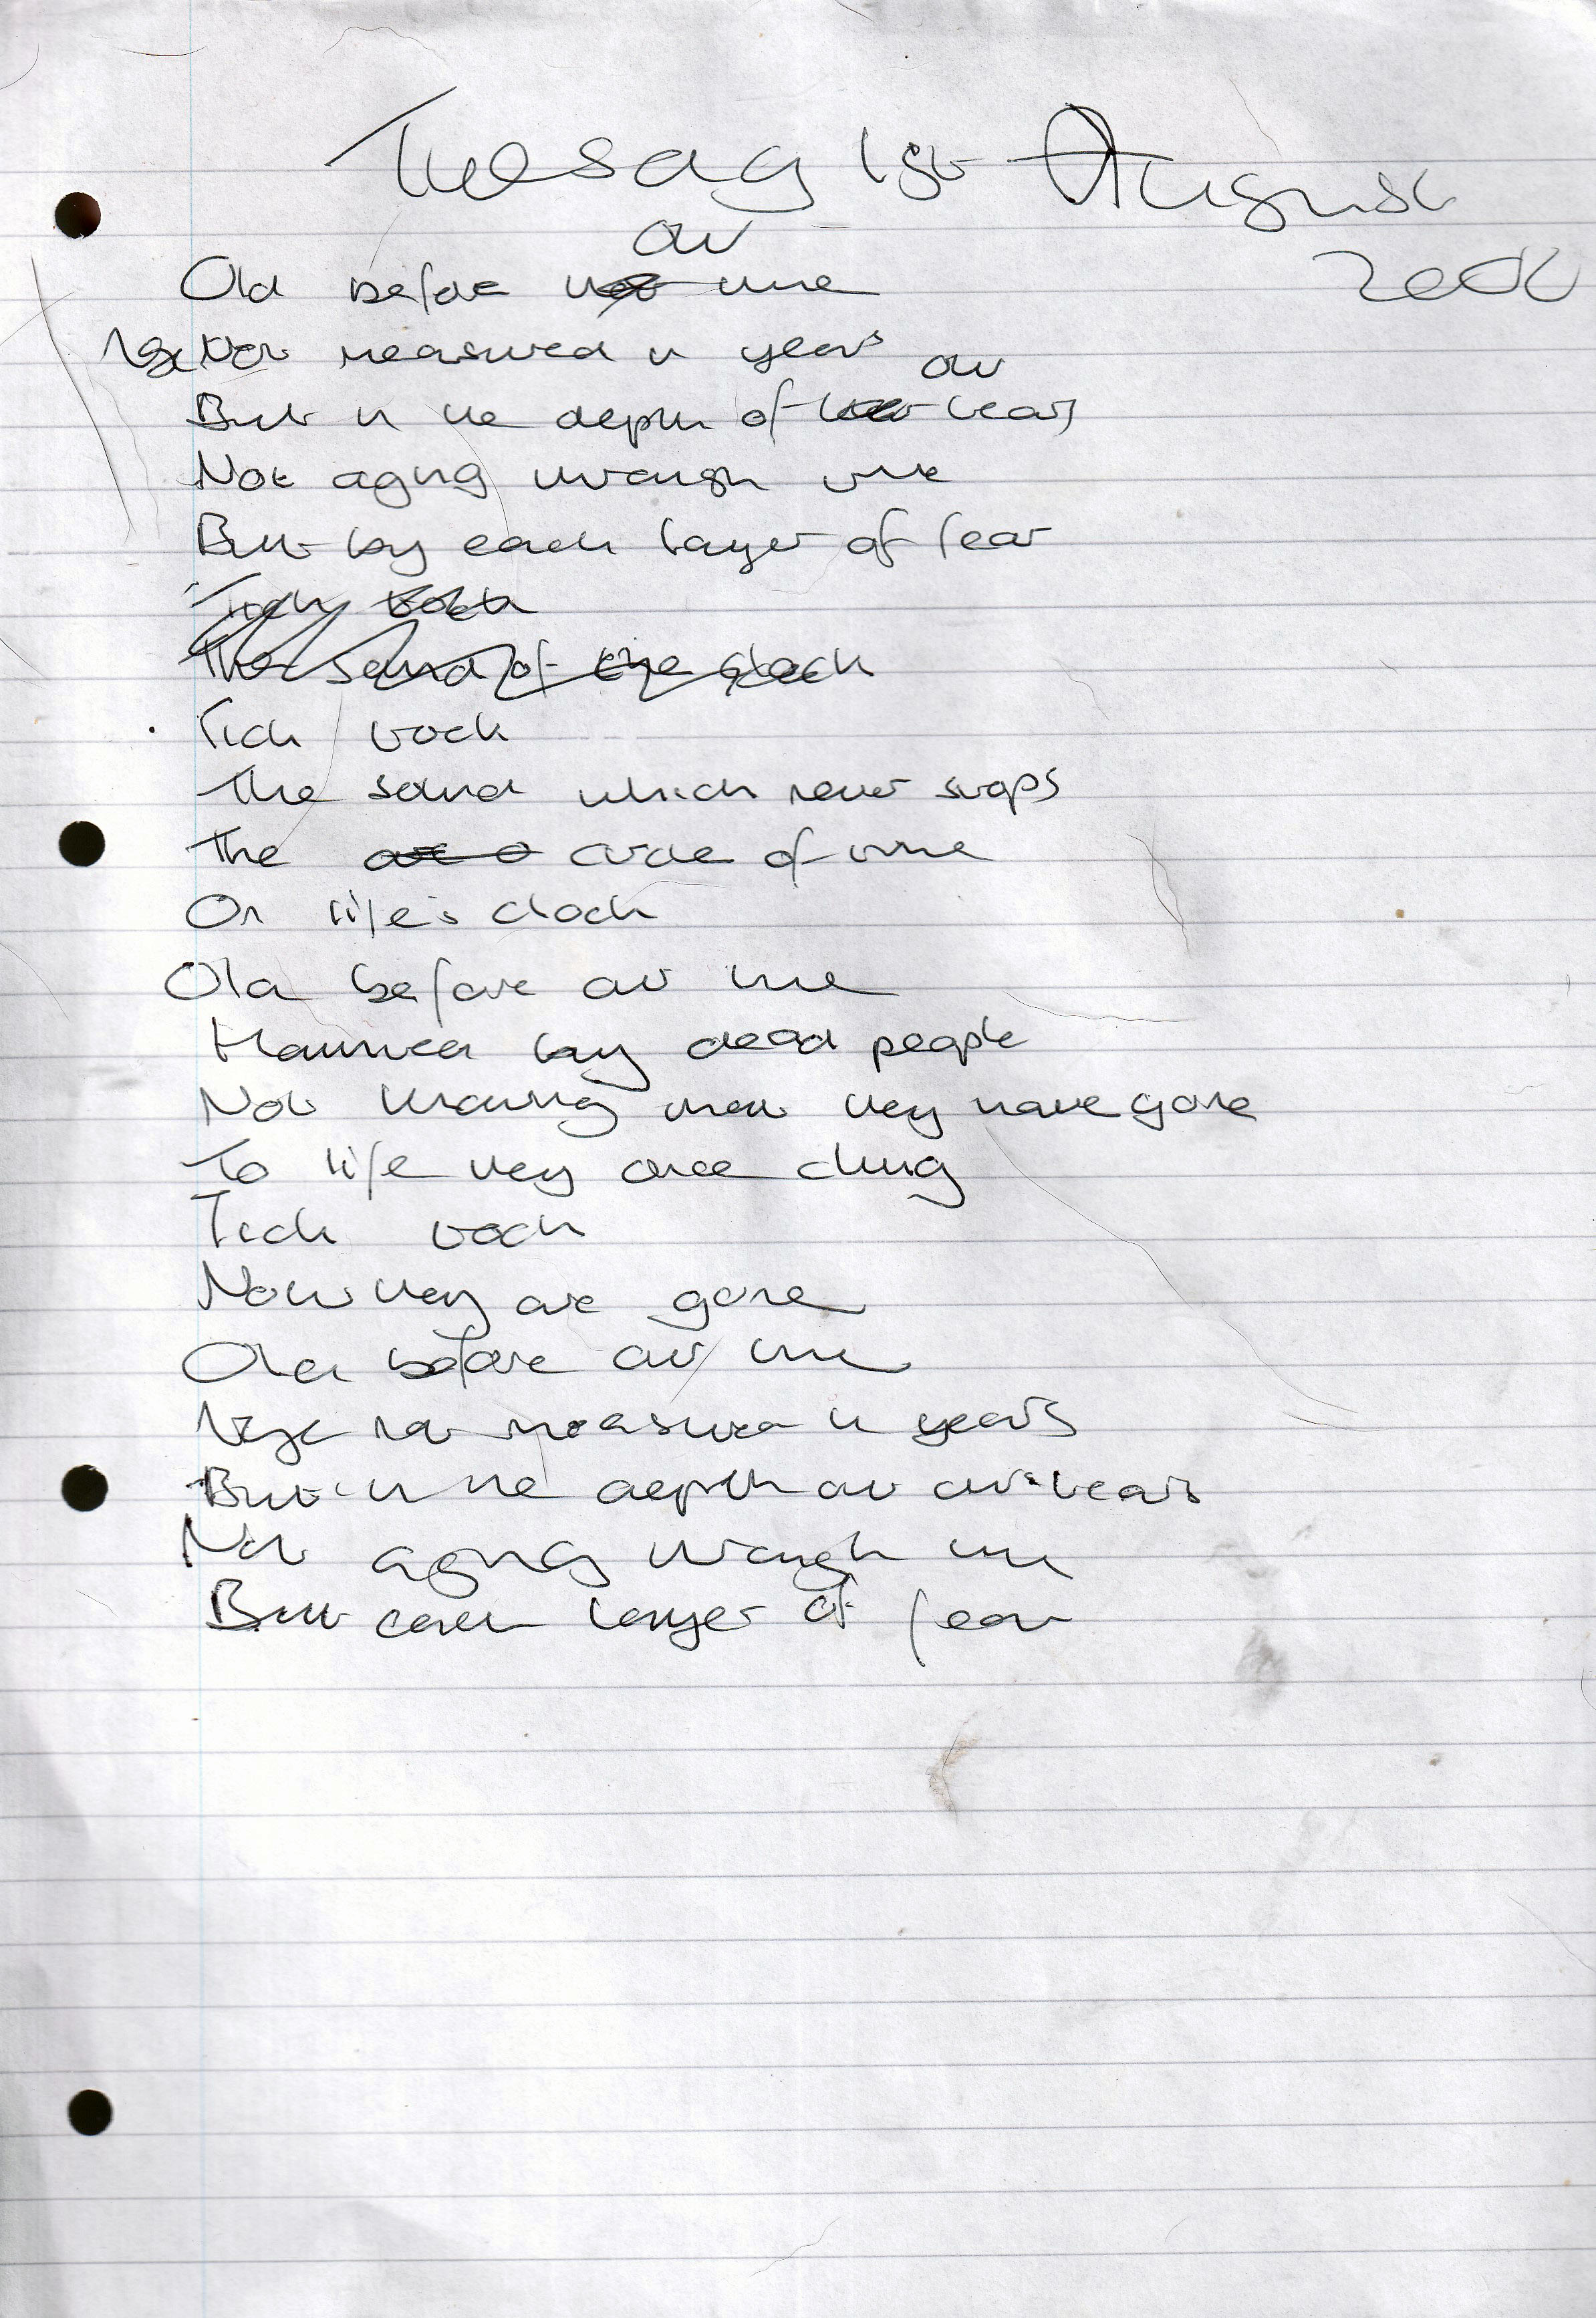 Tuesday 1st August
2006
our
Old before time
Age Not measured in years our
But in the depth of tears
Not aging through time
But by each layer of fear
Tick tock
The sound of the clock
Tick tock
The sound which never stops
The circle of time
On life's clock
Old before our time
Haunted by dead people
Not knowing they have gone
To life they once clung
Tick tock
Now they are gone
Older before our time
Age not measured in years
But in the depth of our tears
Not aging through time
But each layer of fear